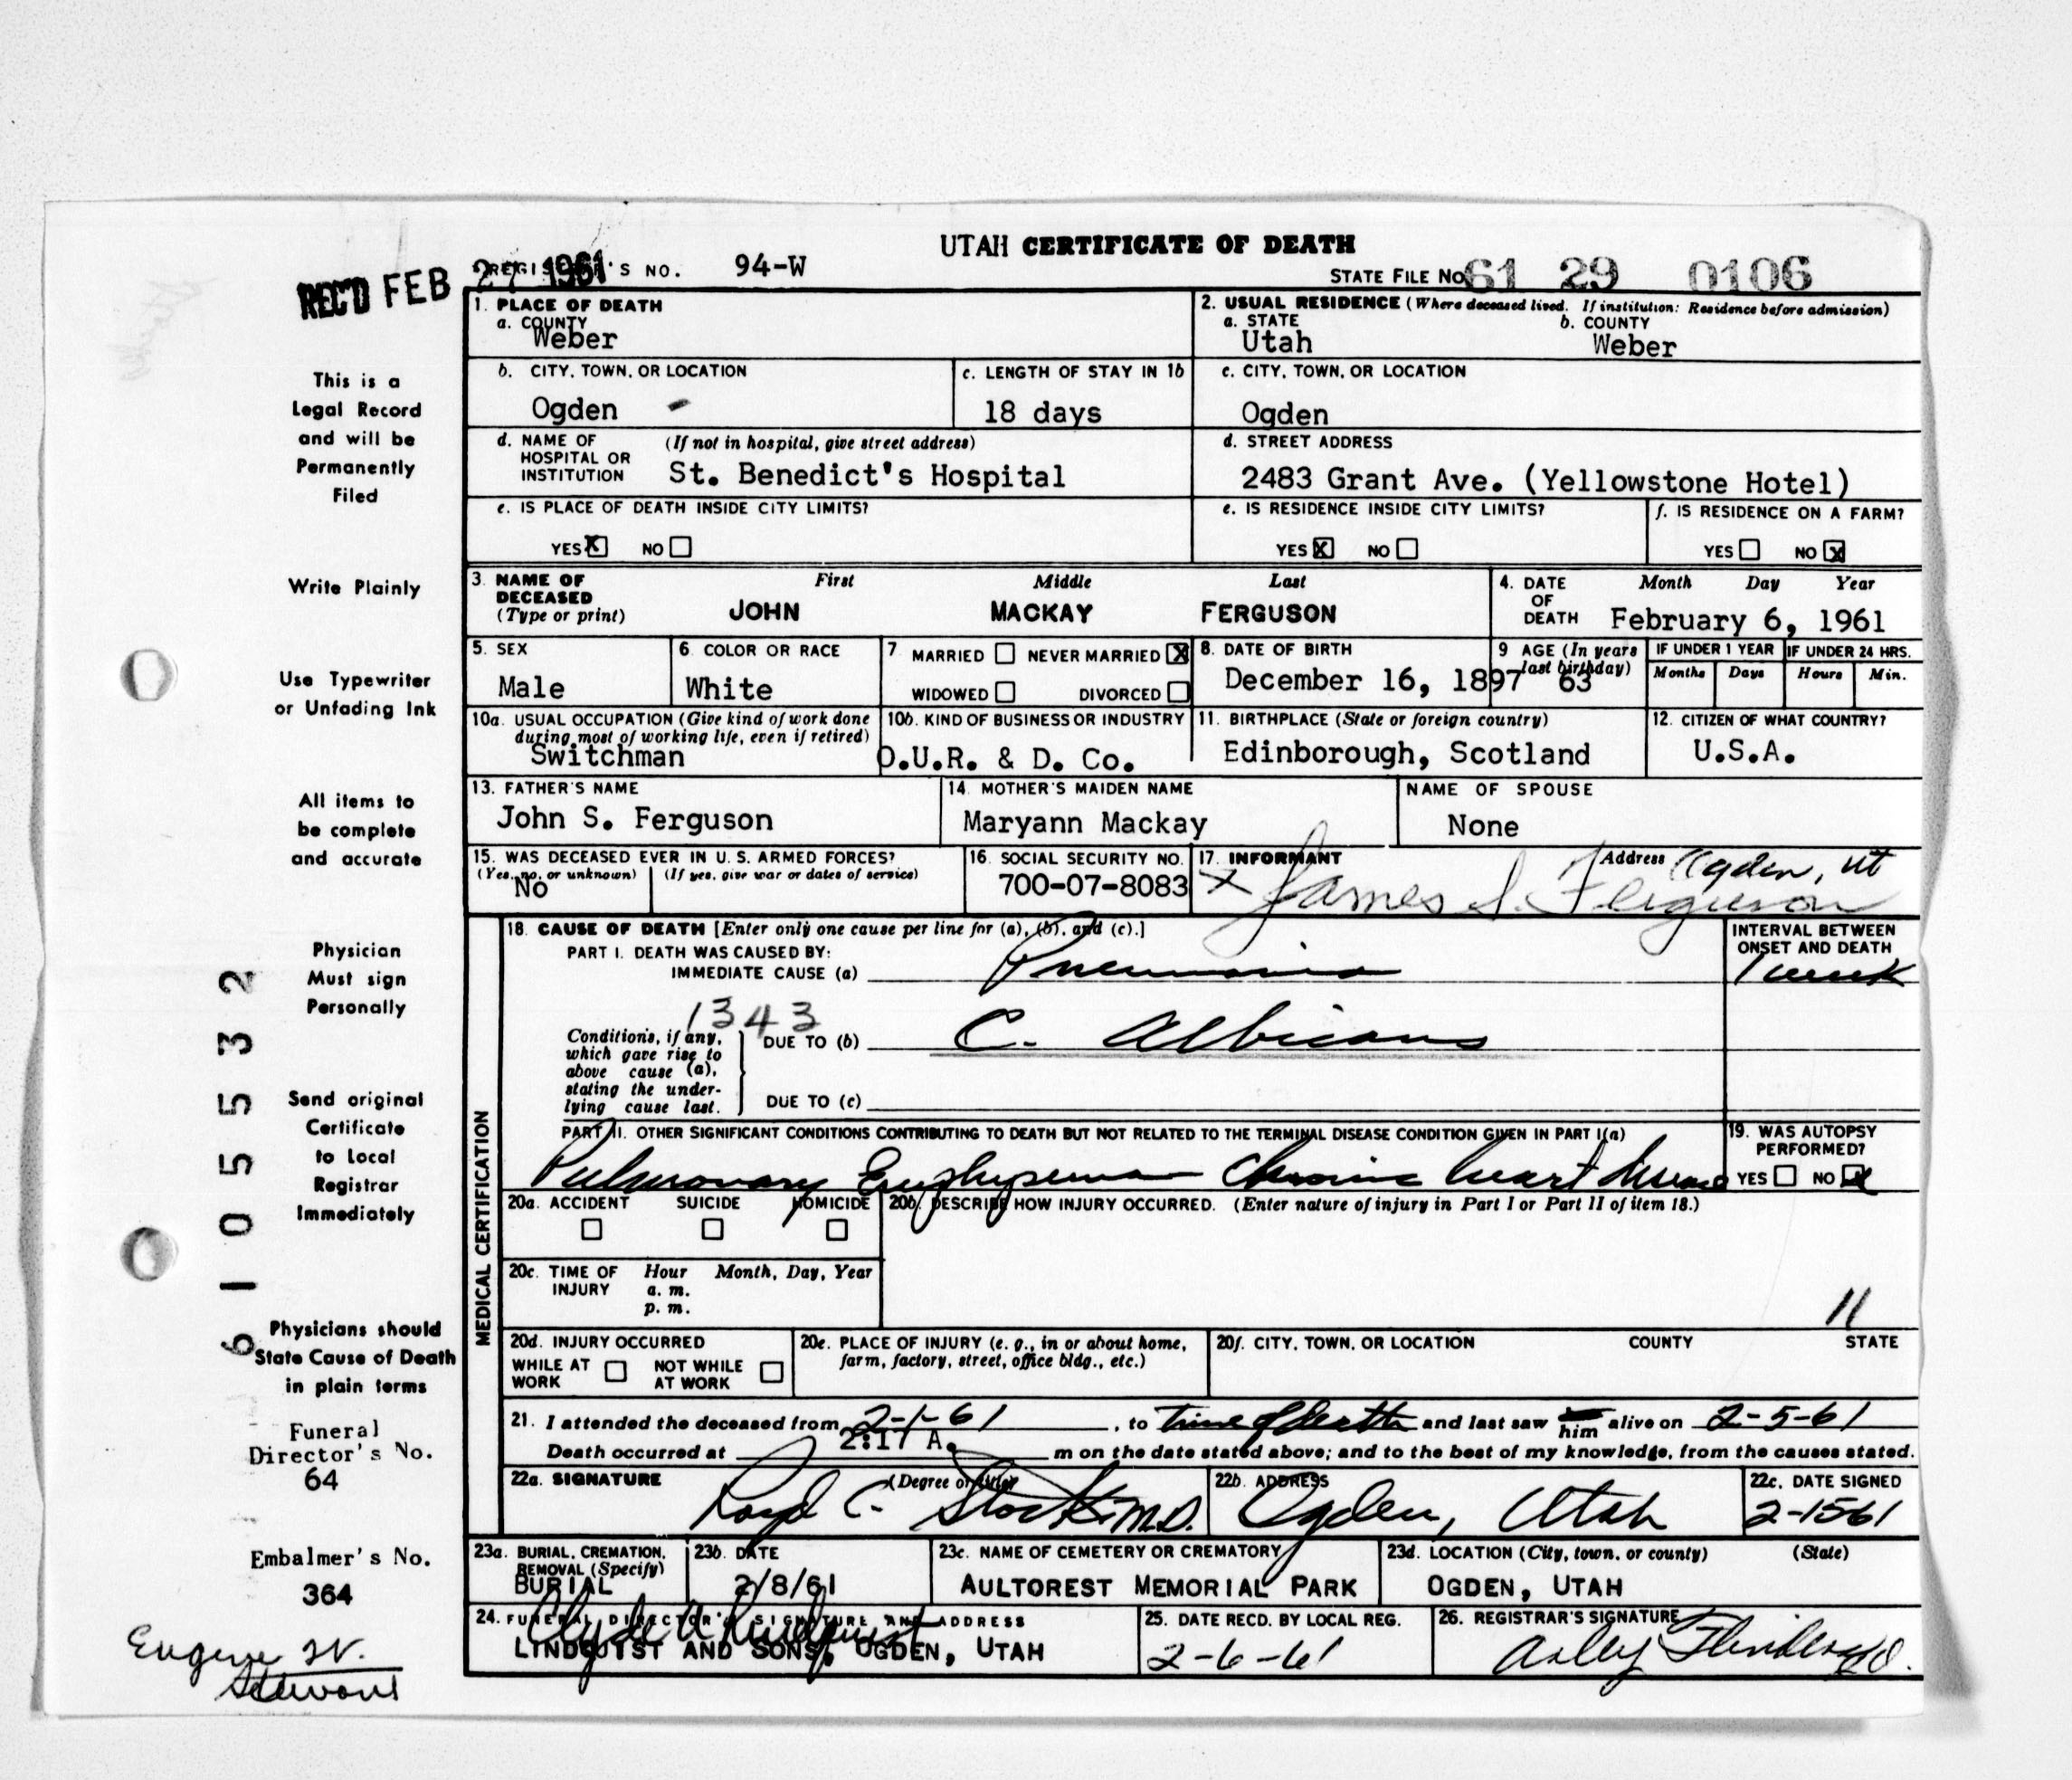 UTAH CERTIFICATE OF DEATH
REC'D FEB 27 1961
REGISTRAR'S NO. 94-W
STATE FILE NO. 61 29 0106
1. PLACE OF DEATH
a. COUNTY
Weber
2. USUAL RESIDENCE (Where deceased lived. If institution: Residence before admission)
a. STATE b. COUNTY
Utah Weber
This is a
Legal Record
and will be
Permanently
Filed
b. CITY, TOWN, OR LOCATION
Ogden
c. LENGTH OF STAY IN 1b
18 days
c. CITY, TOWN, OR LOCATION
Ogden
d. NAME OF (If not in hospital, give street address)
HOSPITAL OR
INSTITUTION St. Benedict's Hospital
d. STREET ADDRESS
2483 Grant Ave. (Yellowstone Hotel)
e. IS PLACE OF DEATH INSIDE CITY LIMITS?
YES X NO
e. IS RESIDENCE INSIDE CITY LIMITS?
YES X NO
f. IS RESIDENCE ON A FARM?
YES NO X
Write Plainly
3. NAME OF First Middle Last
DECEASED
(Type or print) JOHN MACKAY FERGUSON
4. DATE Month Day Year
OF
DEATH February 6, 1961
Use Typewriter
or Unfading Ink
5. SEX
Male
6. COLOR OR RACE
White
7 MARRIED NEVER MARRIED X
WIDOWED DIVORCED
8. DATE OF BIRTH
December 16, 1897
9 AGE (In years
last birthday)
63
IF UNDER 1 YEAR IF UNDER 24 HRS.
Months Days Hours Min.
10a. USUAL OCCUPATION (Give kind of work done
during most of working life, even if retired)
Switchman
10b. KIND OF BUSINESS OR INDUSTRY
O.U.R. & D. Co.
11. BIRTHPLACE (State or foreign country)
Edinborough, Scotland
12. CITIZEN OF WHAT COUNTRY?
U.S.A.
All items to
be complete
and accurate
13. FATHER'S NAME
John S. Ferguson
14. MOTHER'S MAIDEN NAME
Maryann Mackay
NAME OF SPOUSE
None
15. WAS DECEASED EVER IN U. S. ARMED FORCES?
(Yes, no, or unknown) (If yes, give war or dates of service)
No
16. SOCIAL SECURITY NO.
700-07-8083
17. INFORMANT Address Ogden, Ut
X James S. Ferguson
Physician
Must sign
Personally
MEDICAL CERTIFICATION
18. CAUSE OF DEATH [Enter only one cause per line for (a), (b), and (c).]
PART I. DEATH WAS CAUSED BY:
IMMEDIATE CAUSE (a) Pneumonia
INTERVAL BETWEEN
ONSET AND DEATH
1 week
1343
Conditions, if any,
which gave rise to
above cause (a),
stating the under-
lying cause last.
DUE TO (b) C. Albicans
DUE TO (c)
Send original
Certificate
to Local
Registrar
Immediately
6105532
PART II. OTHER SIGNIFICANT CONDITIONS CONTRIBUTING TO DEATH BUT NOT RELATED TO THE TERMINAL DISEASE CONDITION GIVEN IN PART I(a)
Pulmonary Emphysema Chronic heart disease
19. WAS AUTOPSY
PERFORMED?
YES NO X
20a. ACCIDENT SUICIDE HOMICIDE
20b. DESCRIBE HOW INJURY OCCURRED. (Enter nature of injury in Part I or Part II of item 18.)
20c. TIME OF Hour Month, Day, Year
INJURY a. m.
p. m.
11
Physicians should
State Cause of Death
in plain terms
20d. INJURY OCCURRED
WHILE AT WORK NOT WHILE AT WORK
20e. PLACE OF INJURY (e. g., in or about home,
farm, factory, street, office bldg., etc.)
20f. CITY, TOWN, OR LOCATION COUNTY STATE
21. I attended the deceased from 2-1-61, to time of death and last saw him alive on 2-5-61
Death occurred at 2:17 A. m on the date stated above; and to the best of my knowledge, from the causes stated.
Funeral
Director's No.
64
22a. SIGNATURE (Degree or title)
Loyd C. Stock M.D.
22b. ADDRESS
Ogden, Utah
22c. DATE SIGNED
2-1561
Embalmer's No.
364
Eugene W.
Stewart
23a. BURIAL, CREMATION,
REMOVAL (Specify)
BURIAL
23b. DATE
2/8/61
23c. NAME OF CEMETERY OR CREMATORY
AULTOREST MEMORIAL PARK
23d. LOCATION (City, town, or county) (State)
OGDEN, UTAH
24. FUNERAL DIRECTOR'S SIGNATURE AND ADDRESS
Clyde A Lindquist
LINDQUIST AND SONS, OGDEN, UTAH
25. DATE RECD. BY LOCAL REG.
2-6-61
26. REGISTRAR'S SIGNATURE